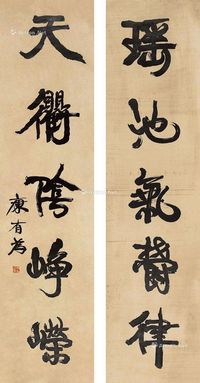 瑶池氣鬱律
天衢陰崢嶸
康有為